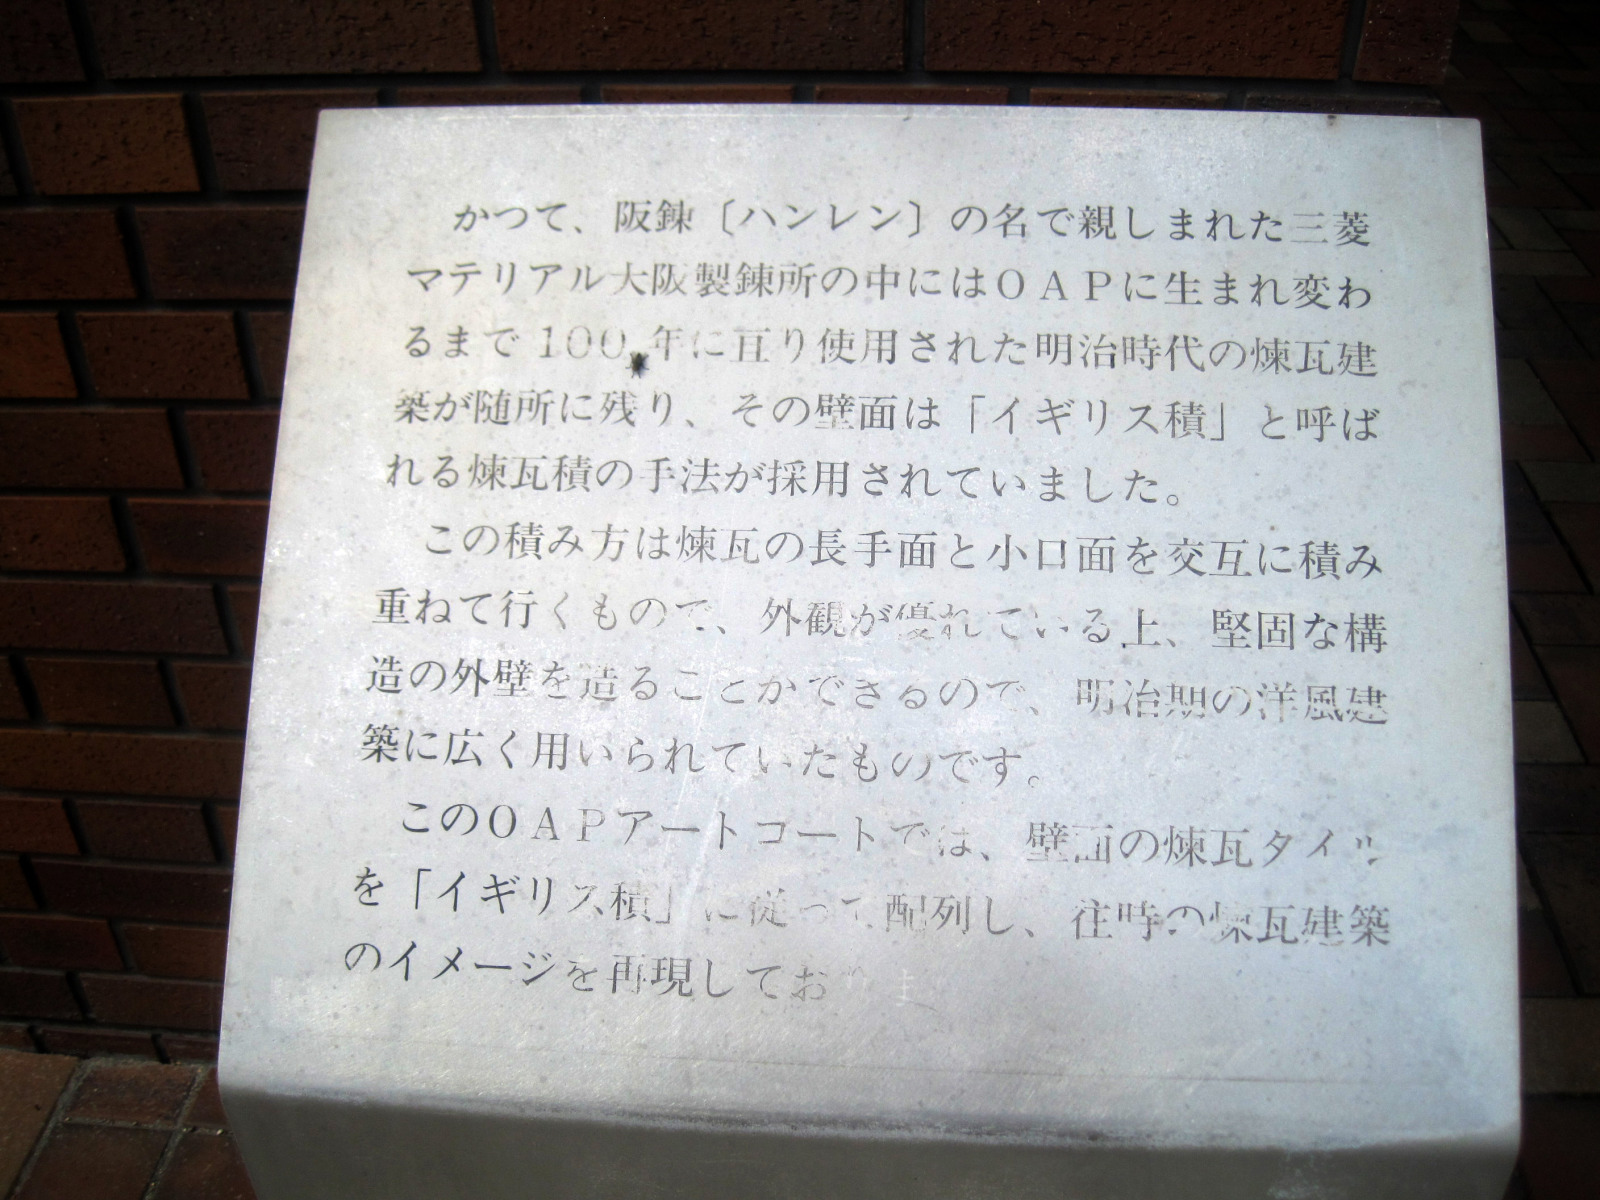 かつて、阪錬〔ハンレン〕の名で親しまれた三菱
マテリアル大阪製錬所の中にはOAPに生まれ変わ
るまで100年に亘り使用された明治時代の煉瓦建
築が随所に残り、その壁面は「イギリス積」と呼ば
れる煉瓦積の手法が採用されていました。
この積み方は煉瓦の長手面と小口面を交互に積み
重ねて行くもので、外観が優れている上、堅固な構
造の外壁を造ることができるので、明治期の洋風建
築に広く用いられていたものです。
このOAPアートコートでは、壁面の煉瓦タイル
を「イギリス積」に従って配列し、往時の煉瓦建築
のイメージを再現しておりま